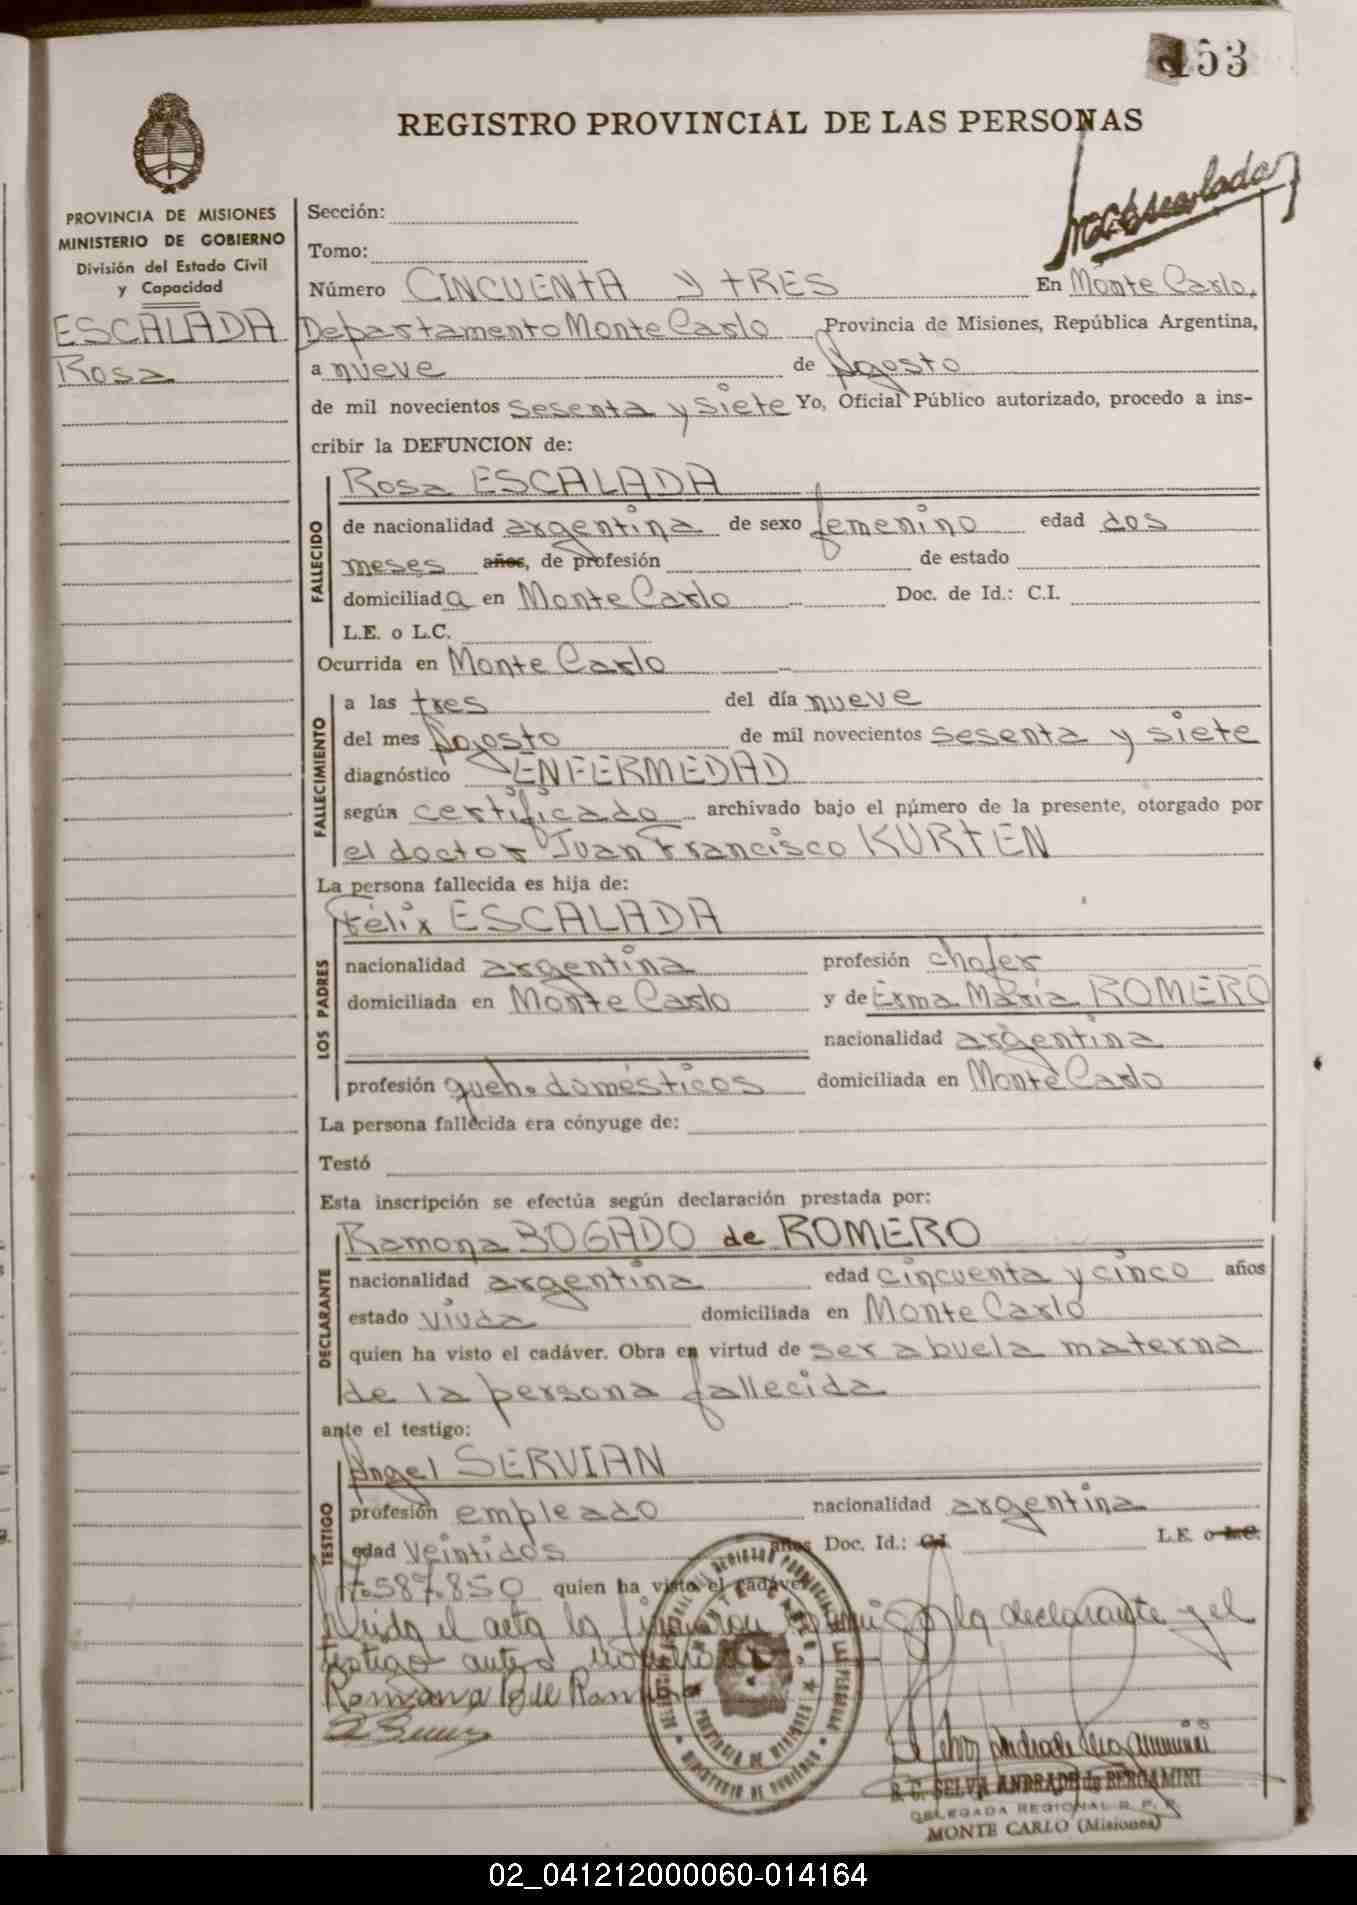 153
REGISTRO PROVINCIAL DE LAS PERSONAS
PROVINCIA DE MISIONES
MINISTERIO DE GOBIERNO
División del Estado Civil
y Capacidad
ESCALADA
Rosa
Sección:
Tomo:
Número CINCUENTA y TRES En Monte Carlo,
Departamento Monte Carlo Provincia de Misiones, República Argentina,
a nueve de Agosto
de mil novecientos sesenta y siete Yo, Oficial Público autorizado, procedo a ins-
cribir la DEFUNCION de:
FALLECIDO
Rosa ESCALADA
de nacionalidad argentina de sexo femenino edad dos
meses años, de profesión de estado
domiciliada en Monte Carlo Doc. de Id.: C.I.
L.E. o L.C.
Ocurrida en Monte Carlo
FALLECIMIENTO
a las tres del día nueve
del mes Agosto de mil novecientos sesenta y siete
diagnóstico ENFERMEDAD
según certificado archivado bajo el número de la presente, otorgado por
el doctor Juan Francisco KURTEN
La persona fallecida es hija de:
LOS PADRES
Félix ESCALADA
nacionalidad argentina profesión chofer
domiciliada en Monte Carlo y de Erma María ROMERO
nacionalidad argentina
profesión queh. domésticos domiciliada en Monte Carlo
La persona fallecida era cónyuge de:
Testó
Esta inscripción se efectúa según declaración prestada por:
DECLARANTE
Ramona BOGADO de ROMERO
nacionalidad argentina edad cincuenta y cinco años
estado viuda domiciliada en Monte Carlo
quien ha visto el cadáver. Obra en virtud de ser abuela materna
de la persona fallecida
ante el testigo:
TESTIGO
Angel SERVIAN
profesión empleado nacionalidad argentina
edad veintidos años Doc. Id.: C.I. L.E. o L.C.
7.587.850 quien ha visto el cadáver
Leida el acta la firmaron la declarante y el
testigo antes
Ramona B de
S. C. SELVA ANDRADE de BERGAMINI
DELEGADA REGIONAL R. P. P.
MONTE CARLO (Misiones)
PROVINCIA DE MISIONES
MINISTERIO DE GOBIERNO
02_041212000060-014164